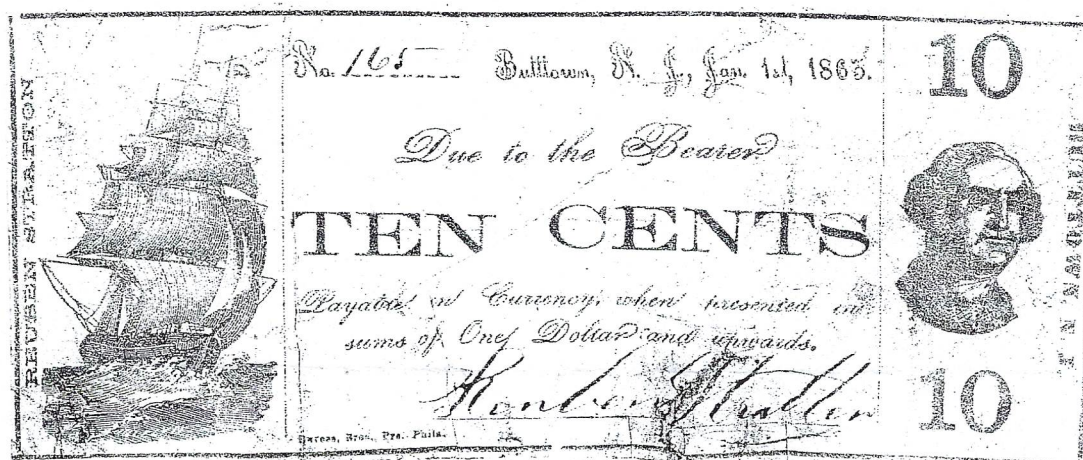 REUBEN STRATTON
No. 165 Bulltown, N. J., Jan. 1st, 1863.
Due to the Bearer
TEN CENTS
Payable in Currency, when presented in
sums of One Dollar and upwards.
Reuben Stratton
Bros., Prs. Phila.
10
10